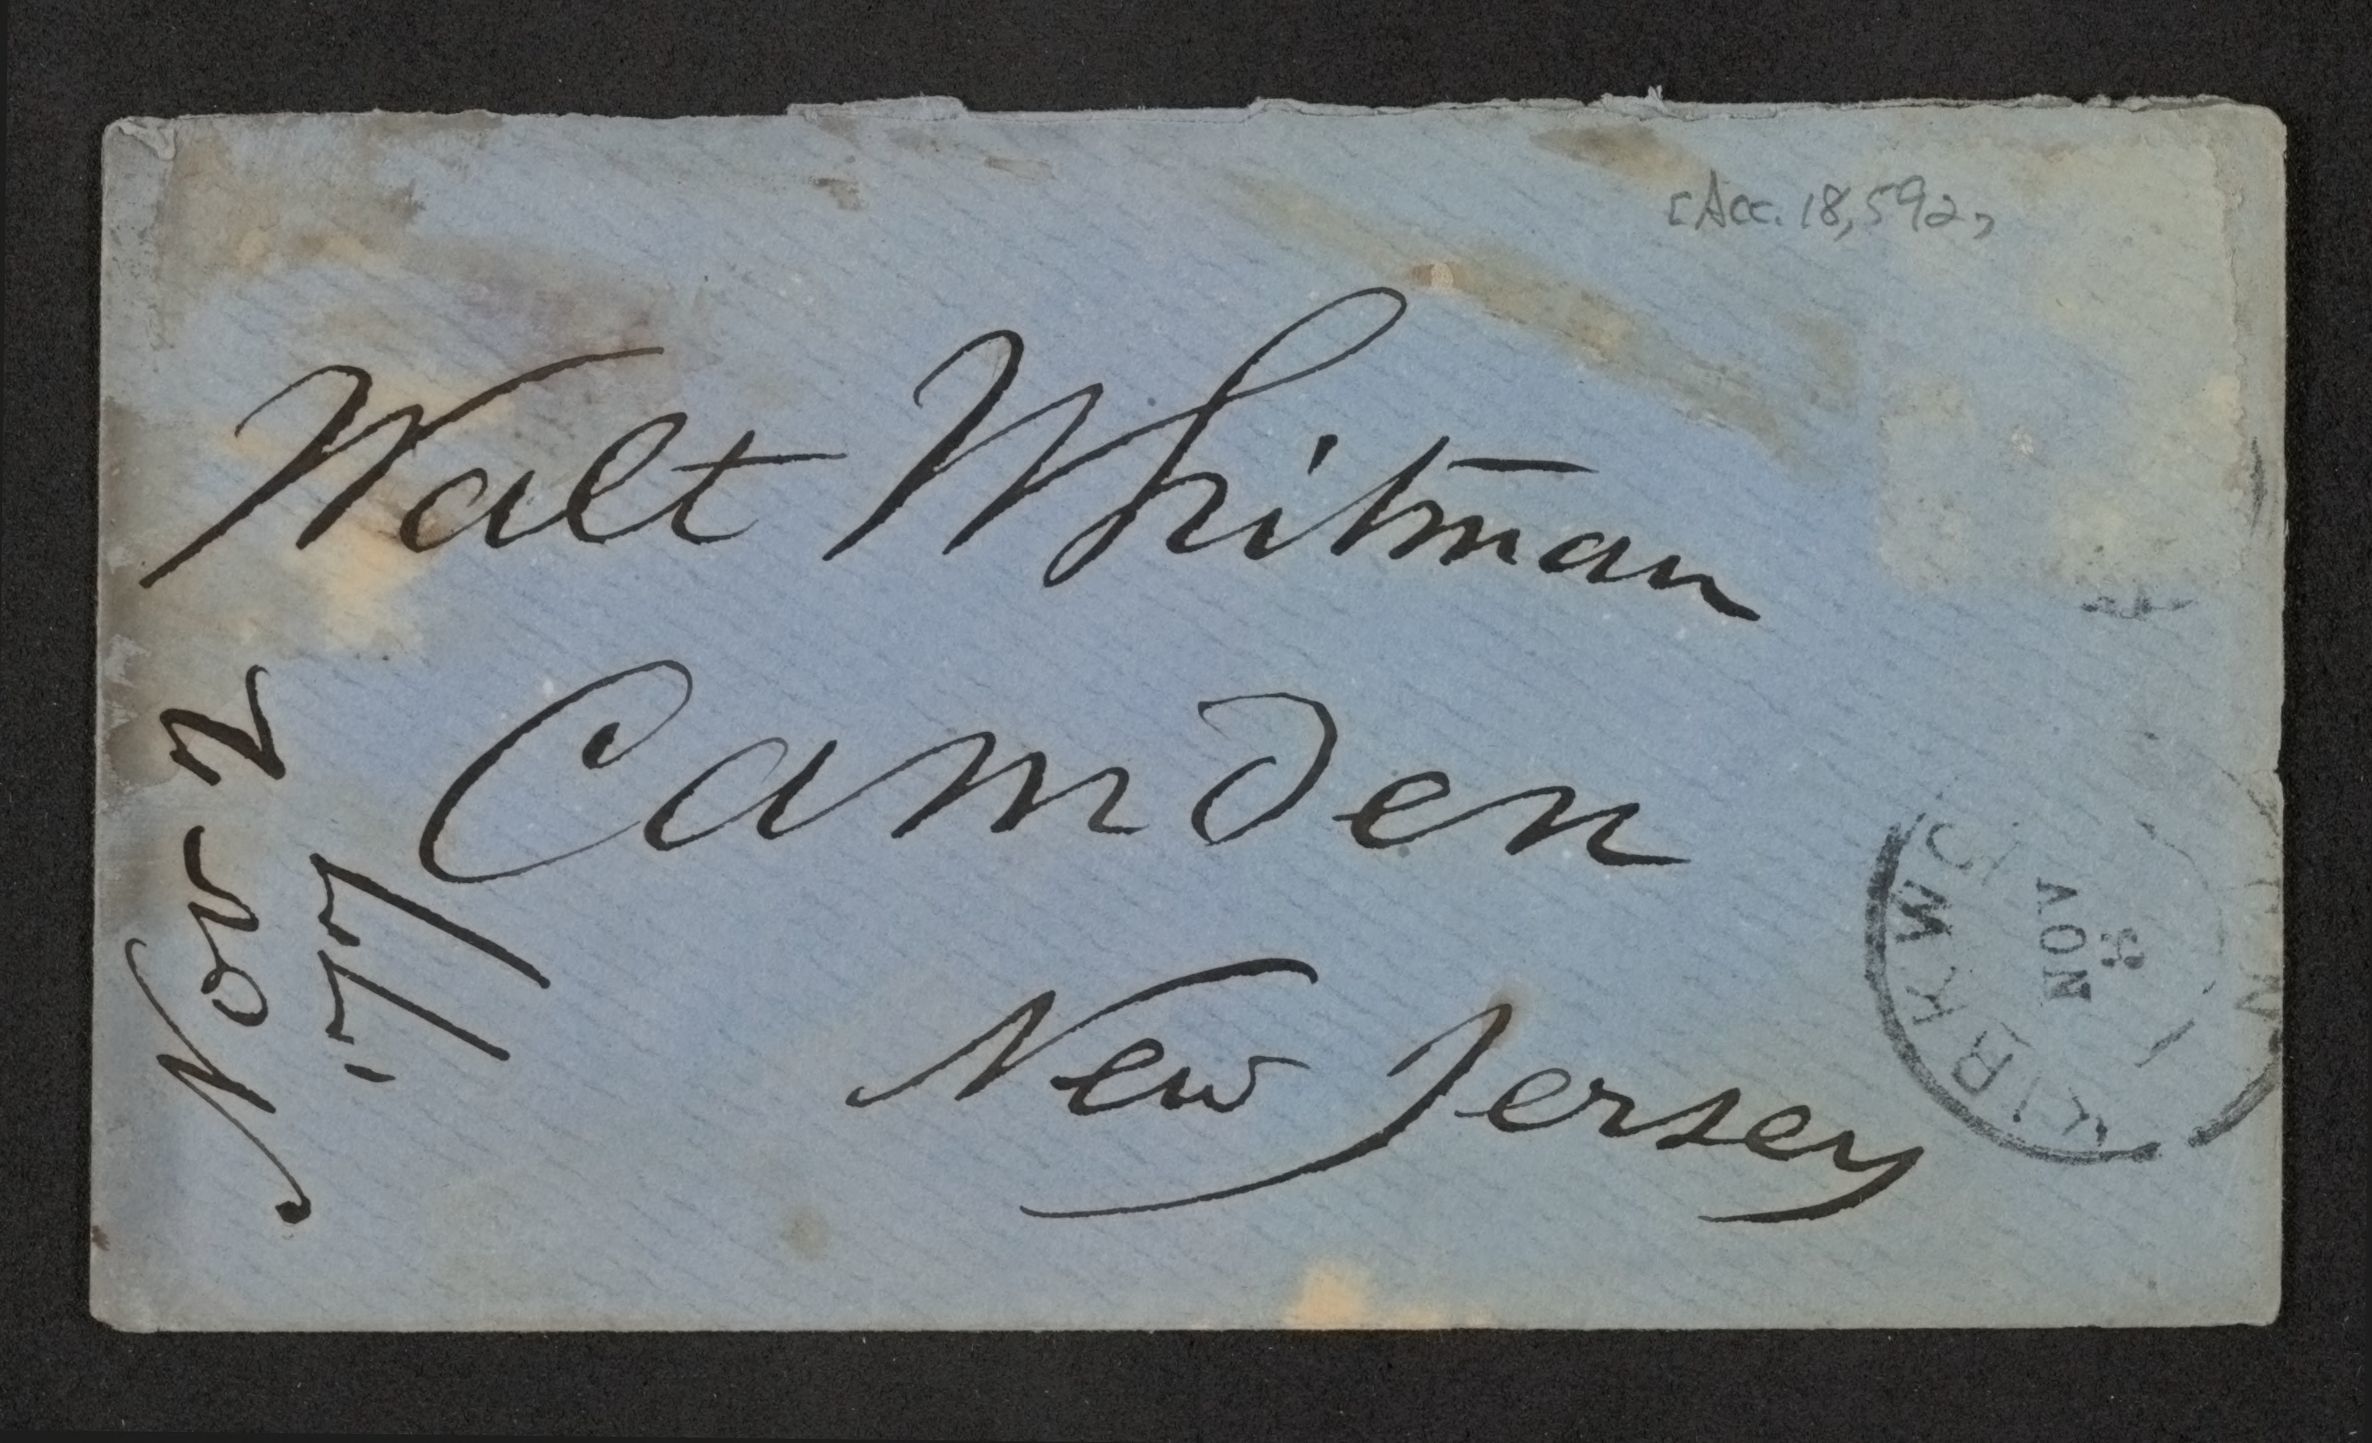 [Acc. 18,592]
Walt Whitman
Camden
New Jersey
Nov 2
'77
KIRKWO
NOV